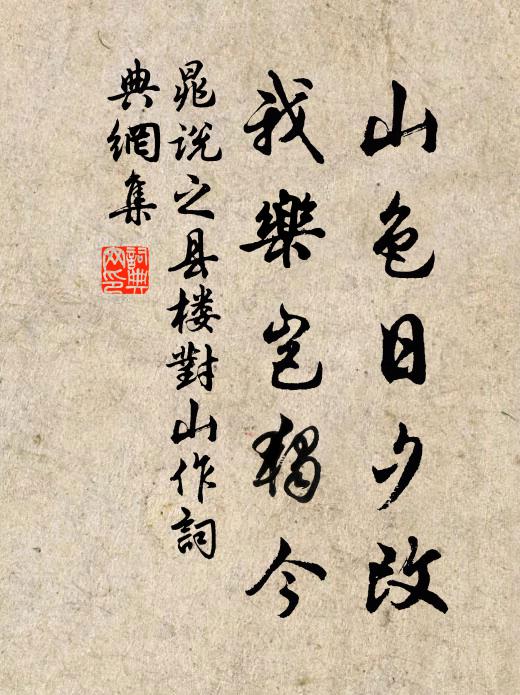 山色日夕改
我樂岂獨今
晁说之县楼對山作詞
典網集
詞典
网印